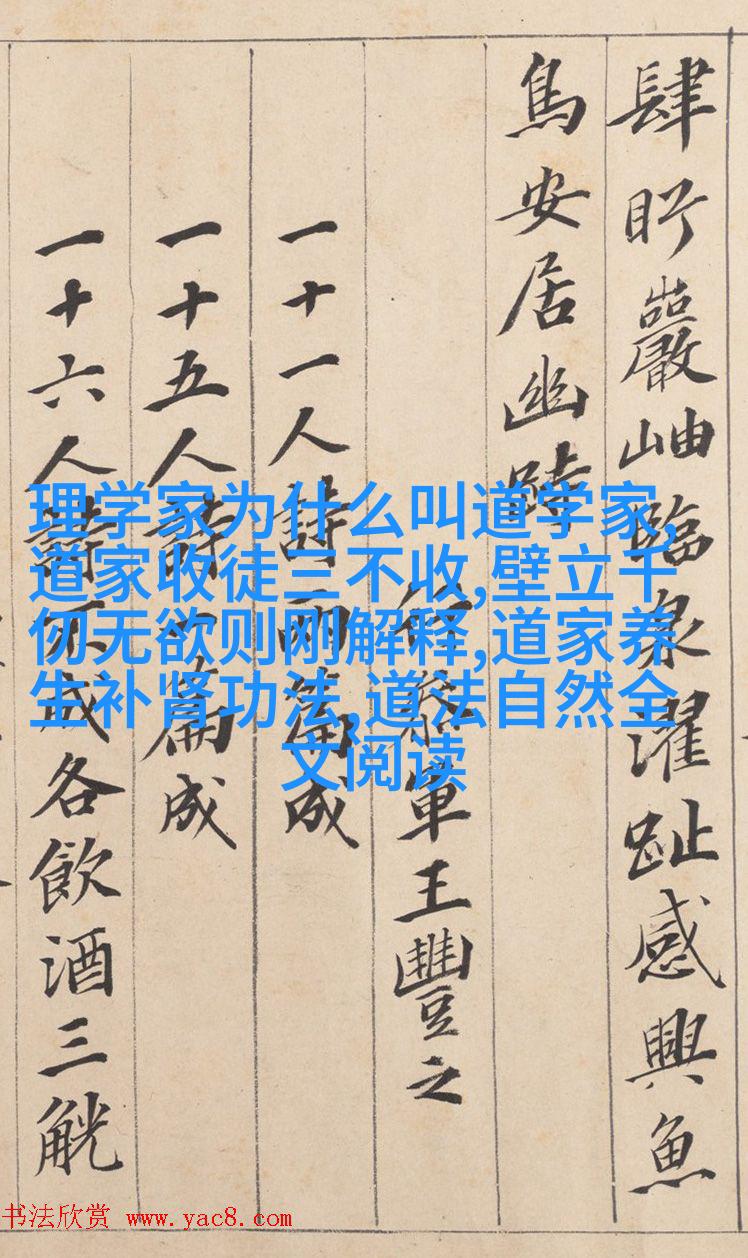 肆眄巖岫臨泉濯趾感興魚
鳥安居幽跱
行參軍王豐之
一十一人詩兩篇成
一十五人詩一篇成
一十六人詩不成各飲酒三觥
理学家为什么叫道学家,
道家收徒三不收,壁立千
仞无欲则刚解释,道家养
生补肾功法,道法自然全
文阅读
书法欣赏 www.yac8.com